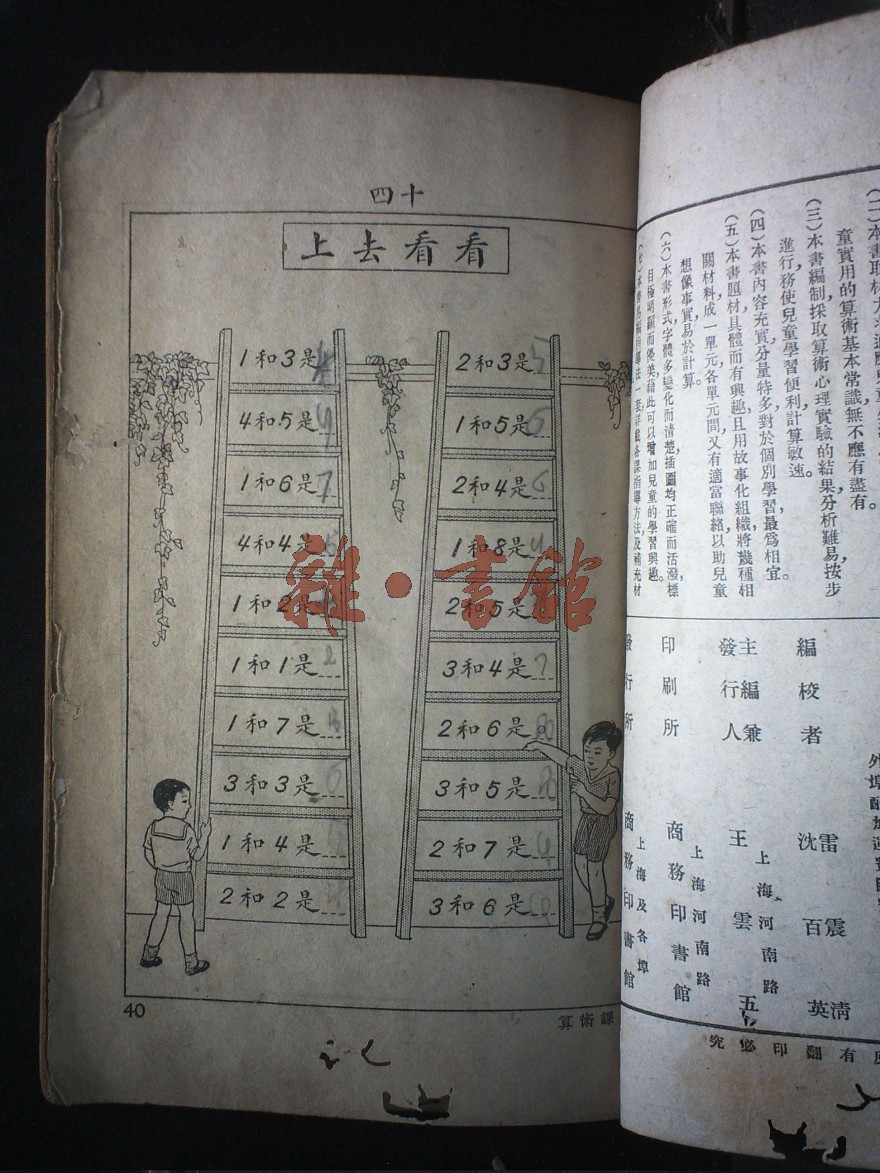 四十
上去看看
1和3是4
4和5是9
1和6是7
4和4是
1和2是
1和1是2
1和7是8
3和3是6
1和4是
2和2是4
2和3是5
1和5是6
2和4是6
1和8是9
2和5是
3和4是7
2和6是8
3和5是8
2和7是9
3和6是
40
算術課
雜·書館
童實用的算術基本常識,無不應有盡有。
(三)本書編制採取算術心理實驗的結果,分析難易,按步
進行,務使兒童學習便利,計算敏速。
(四)本書內容充實,分量特多,對於個別學習,最爲相宜。
(五)本書題材具體而有興趣,且用故事化組織,將幾種相
關材料,成一單元,各單元間又有適當聯絡,以助兒童
想像事實,易於計算。
(六)本書形式字體多變化而清楚,插圖均正確而活潑,標
目極明顯而優美,藉此可以增加兒童的學習興趣。
編校者 沈百英 雷震清
主編兼發行人 王雲五 上海河南路
印刷所 商務印書館 上海河南路
發行所 商務印書館 上海及各埠
有翻印必究